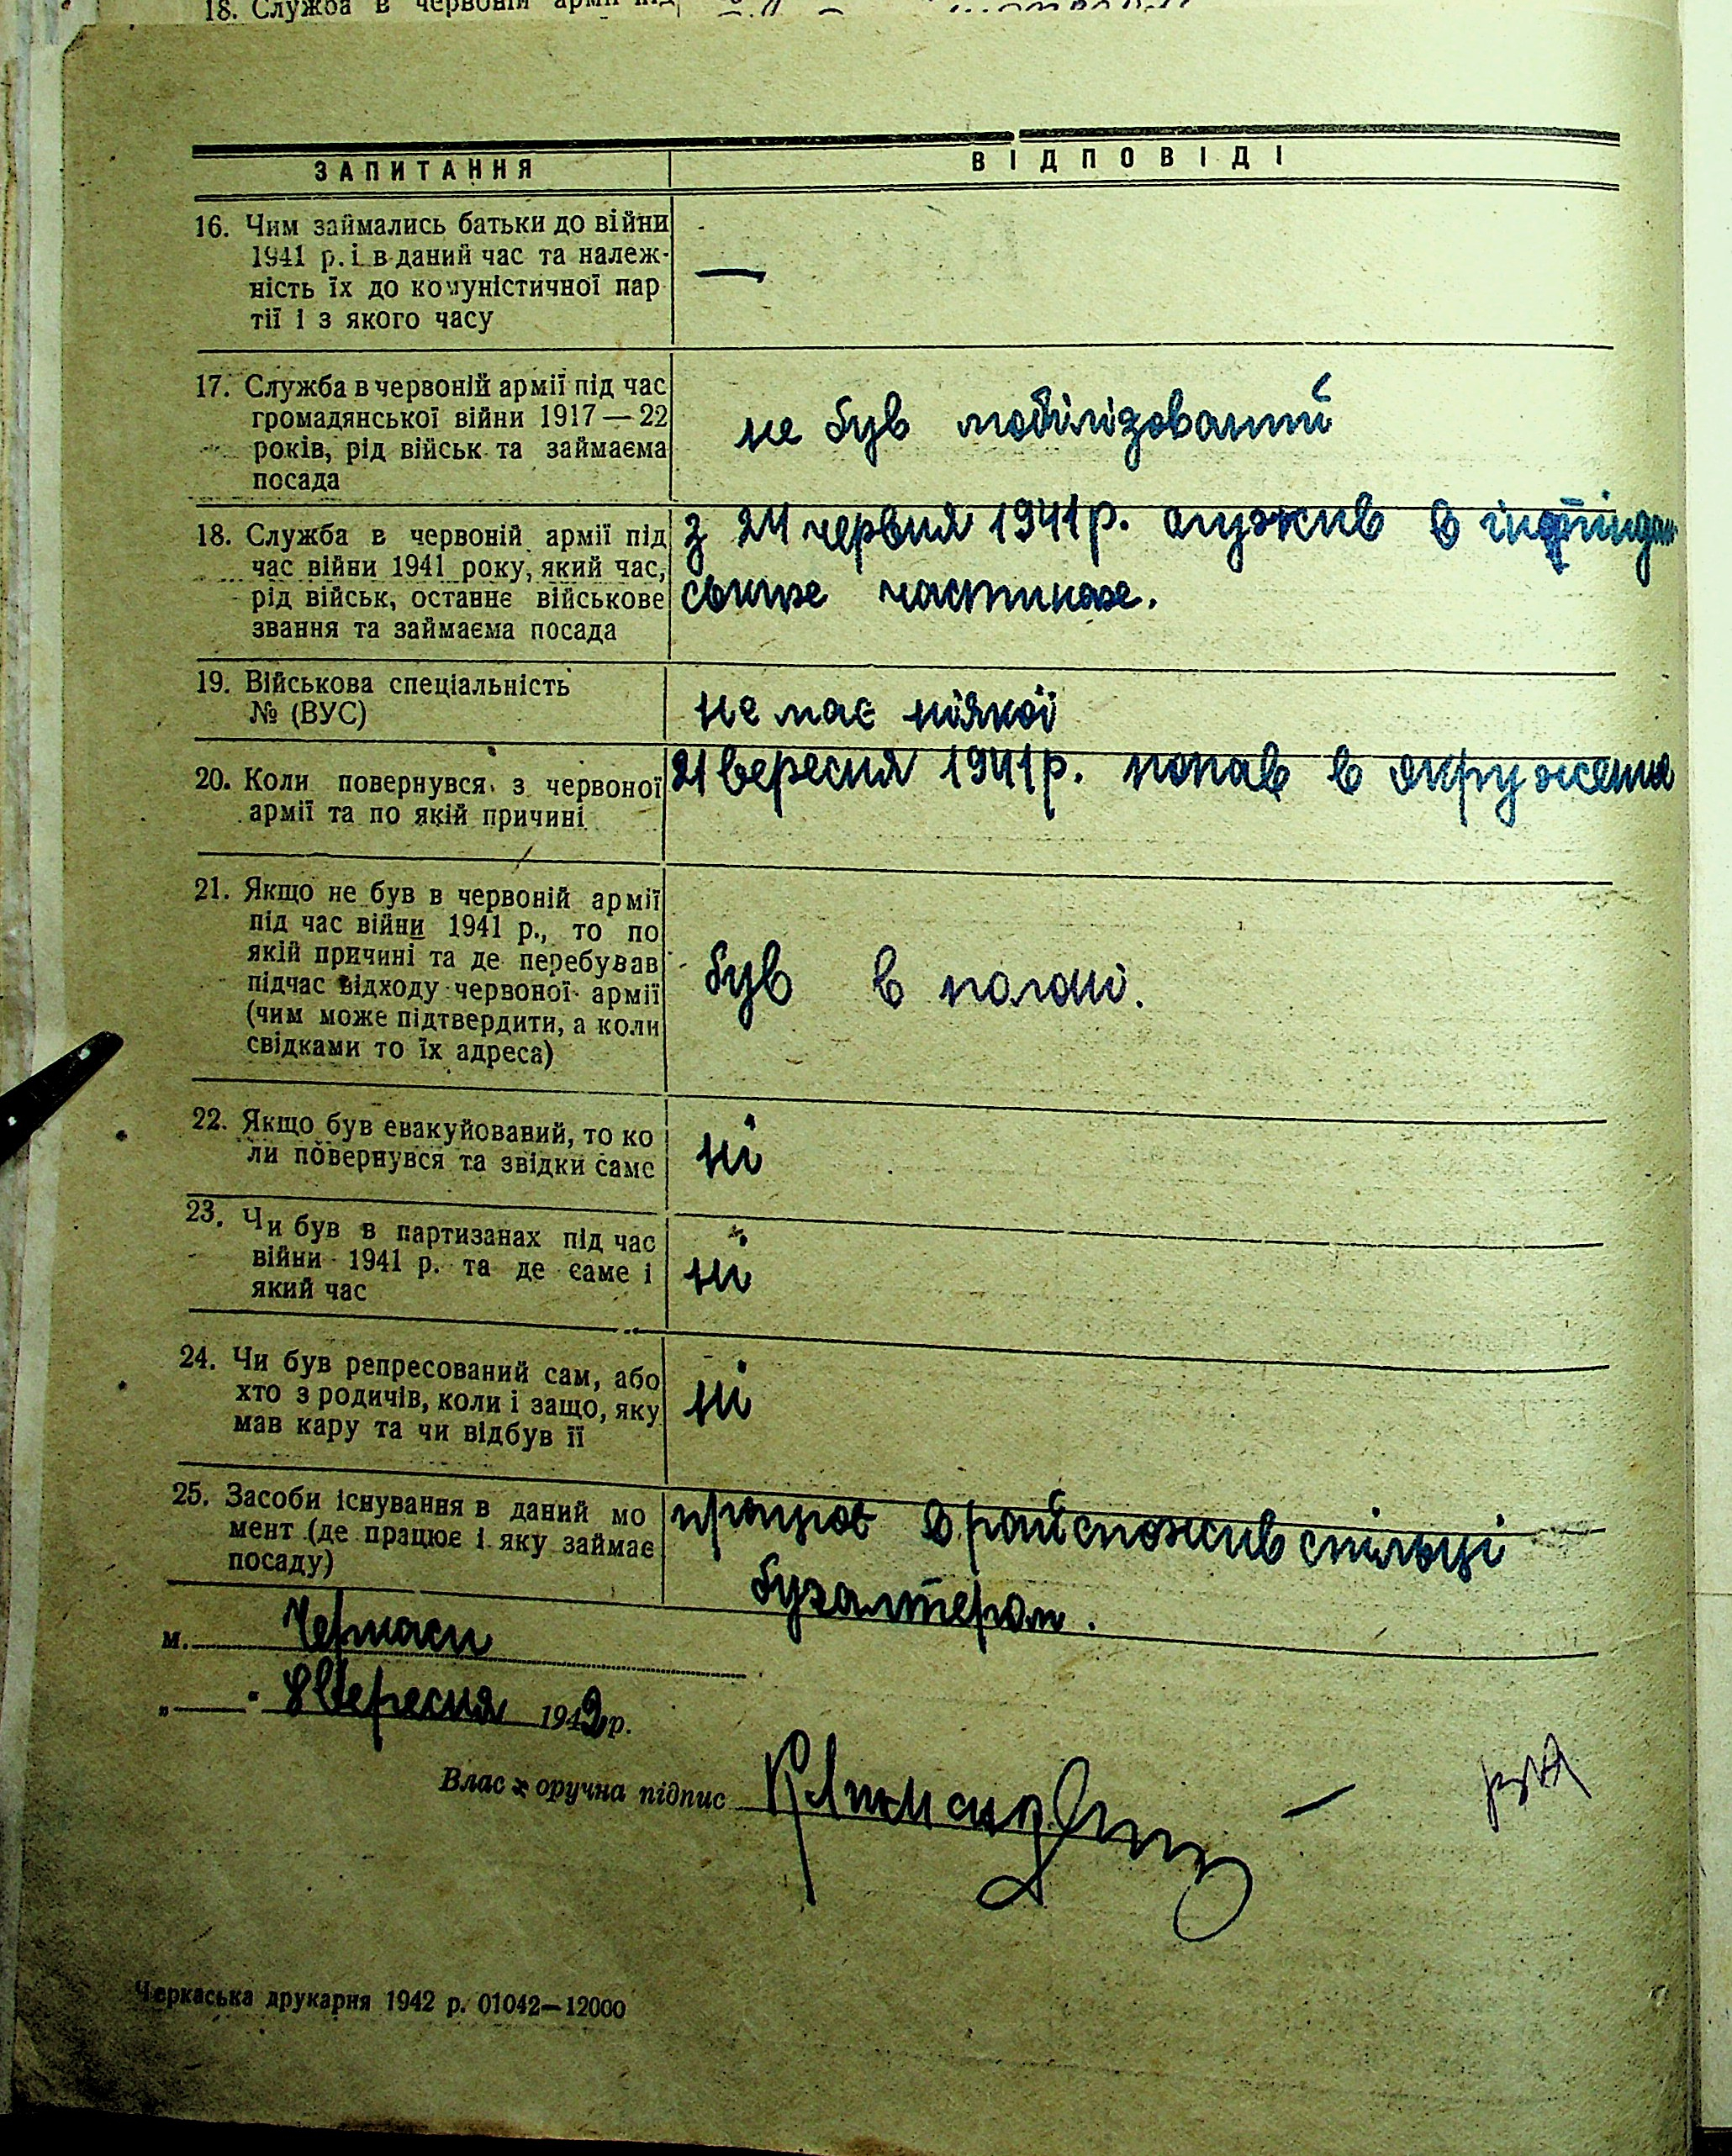 18. Служба в червоній армії під
ЗАПИТАННЯ ВІДПОВІДІ
16. Чим займались батьки до війни
1941 р. і в даний час та належ-
ність їх до комуністичної пар
тії і з якого часу
—
17. Служба в червоній армії під час
громадянської війни 1917—22
років, рід військ та займаєма
посада
не був мобілізований
18. Служба в червоній армії під
час війни 1941 року, який час,
рід військ, останнє військове
звання та займаєма посада
з 24 червня 1941 р. служив в
частинах.
19. Військова спеціальність
№ (ВУС)
не має ніякої
20. Коли повернувся з червоної
армії та по якій причині
21 вересня 1941 р. попав в окруження
21. Якщо не був в червоній армії
під час війни 1941 р., то по
якій причині та де перебував
підчас відходу червоної армії
(чим може підтвердити, а коли
свідками то їх адреса)
був в полоні.
22. Якщо був евакуйований, то ко
ли повернувся та звідки саме
ні
23. Чи був в партизанах під час
війни 1941 р. та де саме і
який час
ні
24. Чи був репресований сам, або
хто з родичів, коли і защо, яку
мав кару та чи відбув її
ні
25. Засоби існування в даний мо
мент (де працює і яку займає
посаду)
працює в райспоживспільці
бухалтером.
м. Черкаси
„ " 8 вересня 1942 р.
Власноручна підпис
Черкаська друкарня 1942 р. 01042—12000